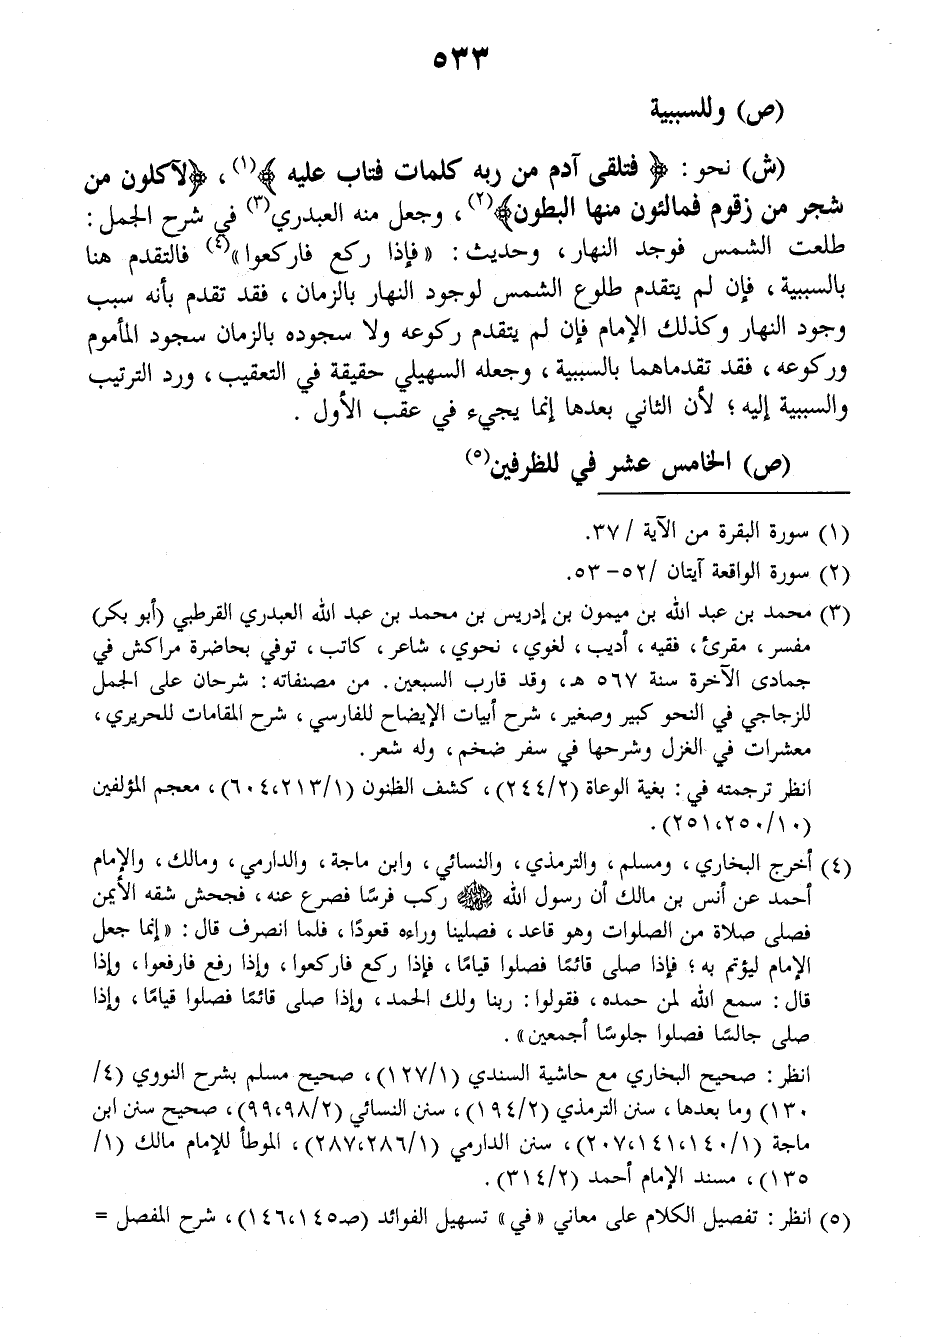 ٥٣٣
(ص) وللسببية
(ش) نحو: ﴿ فتلقى آدم من ربه كلمات فتاب عليه ﴾(١)، ﴿لآكلون من
شجر من زقوم فمالئون منها البطون﴾(٢)، وجعل منه العبدري(٣) في شرح الجمل:
طلعت الشمس فوجد النهار، وحديث: «فإذا ركع فاركعوا»(٤) فالتقدم هنا
بالسببية، فإن لم يتقدم طلوع الشمس لوجود النهار بالزمان، فقد تقدم بأنه سبب
وجود النهار وكذلك الإمام فإن لم يتقدم ركوعه ولا سجوده بالزمان سجود المأموم
وركوعه، فقد تقدماهما بالسببية، وجعله السهيلي حقيقة في التعقيب، ورد الترتيب
والسببية إليه؛ لأن الثاني بعدها إنما يجيء في عقب الأول.
(ص) الخامس عشر في للظرفين(٥)
(١) سورة البقرة من الآية /٣٧.
(٢) سورة الواقعة آيتان /٥٢ – ٥٣.
(٣) محمد بن عبد الله بن ميمون بن إدريس بن محمد بن عبد الله العبدري القرطبي (أبو بكر)
مفسر، مقرئ، فقيه، أديب، لغوي، نحوي، شاعر، كاتب، توفي بحاضرة مراكش في
جمادى الآخرة سنة ٥٦٧ هـ، وقد قارب السبعين. من مصنفاته: شرحان على الجمل
للزجاجي في النحو كبير وصغير، شرح أبيات الإيضاح للفارسي، شرح المقامات للحريري،
معشرات في الغزل وشرحها في سفر ضخم، وله شعر.
انظر ترجمته في: بغية الوعاة (٢٤٤/٢)، كشف الظنون (٦٠٤،٢١٣/١)، معجم المؤلفين
(٢٥١،٢٥٠/١٠).
(٤) أخرج البخاري، ومسلم، والترمذي، والنسائي، وابن ماجة، والدارمي، ومالك، والإمام
أحمد عن أنس بن مالك أن رسول الله ﷺ ركب فرسًا فصرع عنه، فجحش شقه الأيمن
فصلى صلاة من الصلوات وهو قاعد، فصلينا وراءه قعودًا، فلما انصرف قال: «إنما جعل
الإمام ليؤتم به؛ فإذا صلى قائمًا فصلوا قيامًا، فإذا ركع فاركعوا، وإذا رفع فارفعوا، وإذا
قال: سمع الله لمن حمده، فقولوا: ربنا ولك الحمد، وإذا صلى قائمًا فصلوا قيامًا، وإذا
صلى جالسًا فصلوا جلوسًا أجمعين».
انظر: صحيح البخاري مع حاشية السندي (١٢٧/١)، صحيح مسلم بشرح النووي (٤/
١٣٠) وما بعدها، سنن الترمذي (١٩٤/٢)، سنن النسائي (٩٩،٩٨/٢)، صحيح سنن ابن
ماجة (٢٠٧،١٤١،١٤٠/١)، سنن الدارمي (٢٨٧،٢٨٦/١)، الموطأ للإمام مالك (١/
١٣٥)، مسند الإمام أحمد (٣١٤/٢).
(٥) انظر: تفصيل الكلام على معاني «في» تسهيل الفوائد (صـ١٤٦،١٤٥)، شرح المفصل =